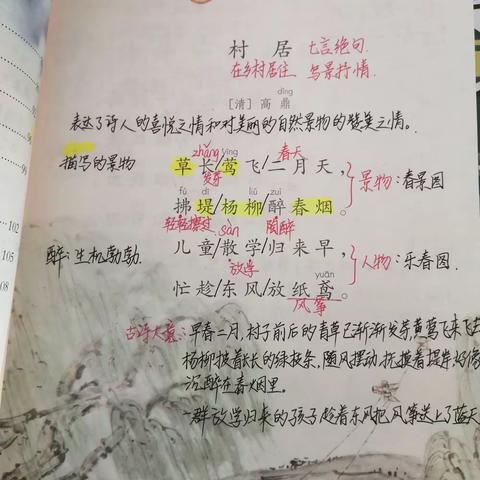 村居 七言绝句.
在乡村居住 写景抒情.
dǐng
[清] 高鼎
表达了诗人的喜悦之情和对美丽的自然景物的赞美之情。
描写的景物
zhǎng yīng 春天
草长/莺飞/二月天， 景物:春景图
发芽
fú dī liǔ zuì
拂堤/杨柳/醉春烟。
轻轻擦过 sàn 陶醉
醉:生机勃勃. 儿童/散学/归来早， 人物:乐春图.
放学
yuān
忙趁/东风/放纸鸢。
风筝
古诗大意:早春二月,村子前后的青草已渐渐发芽,黄莺飞来飞去
杨柳披着长长的绿枝条,随风摆动,抚摸着堤岸,好像
沉醉在春烟里。
一群放学归来的孩子趁着东风把风筝送上了蓝天
99
102
105
108